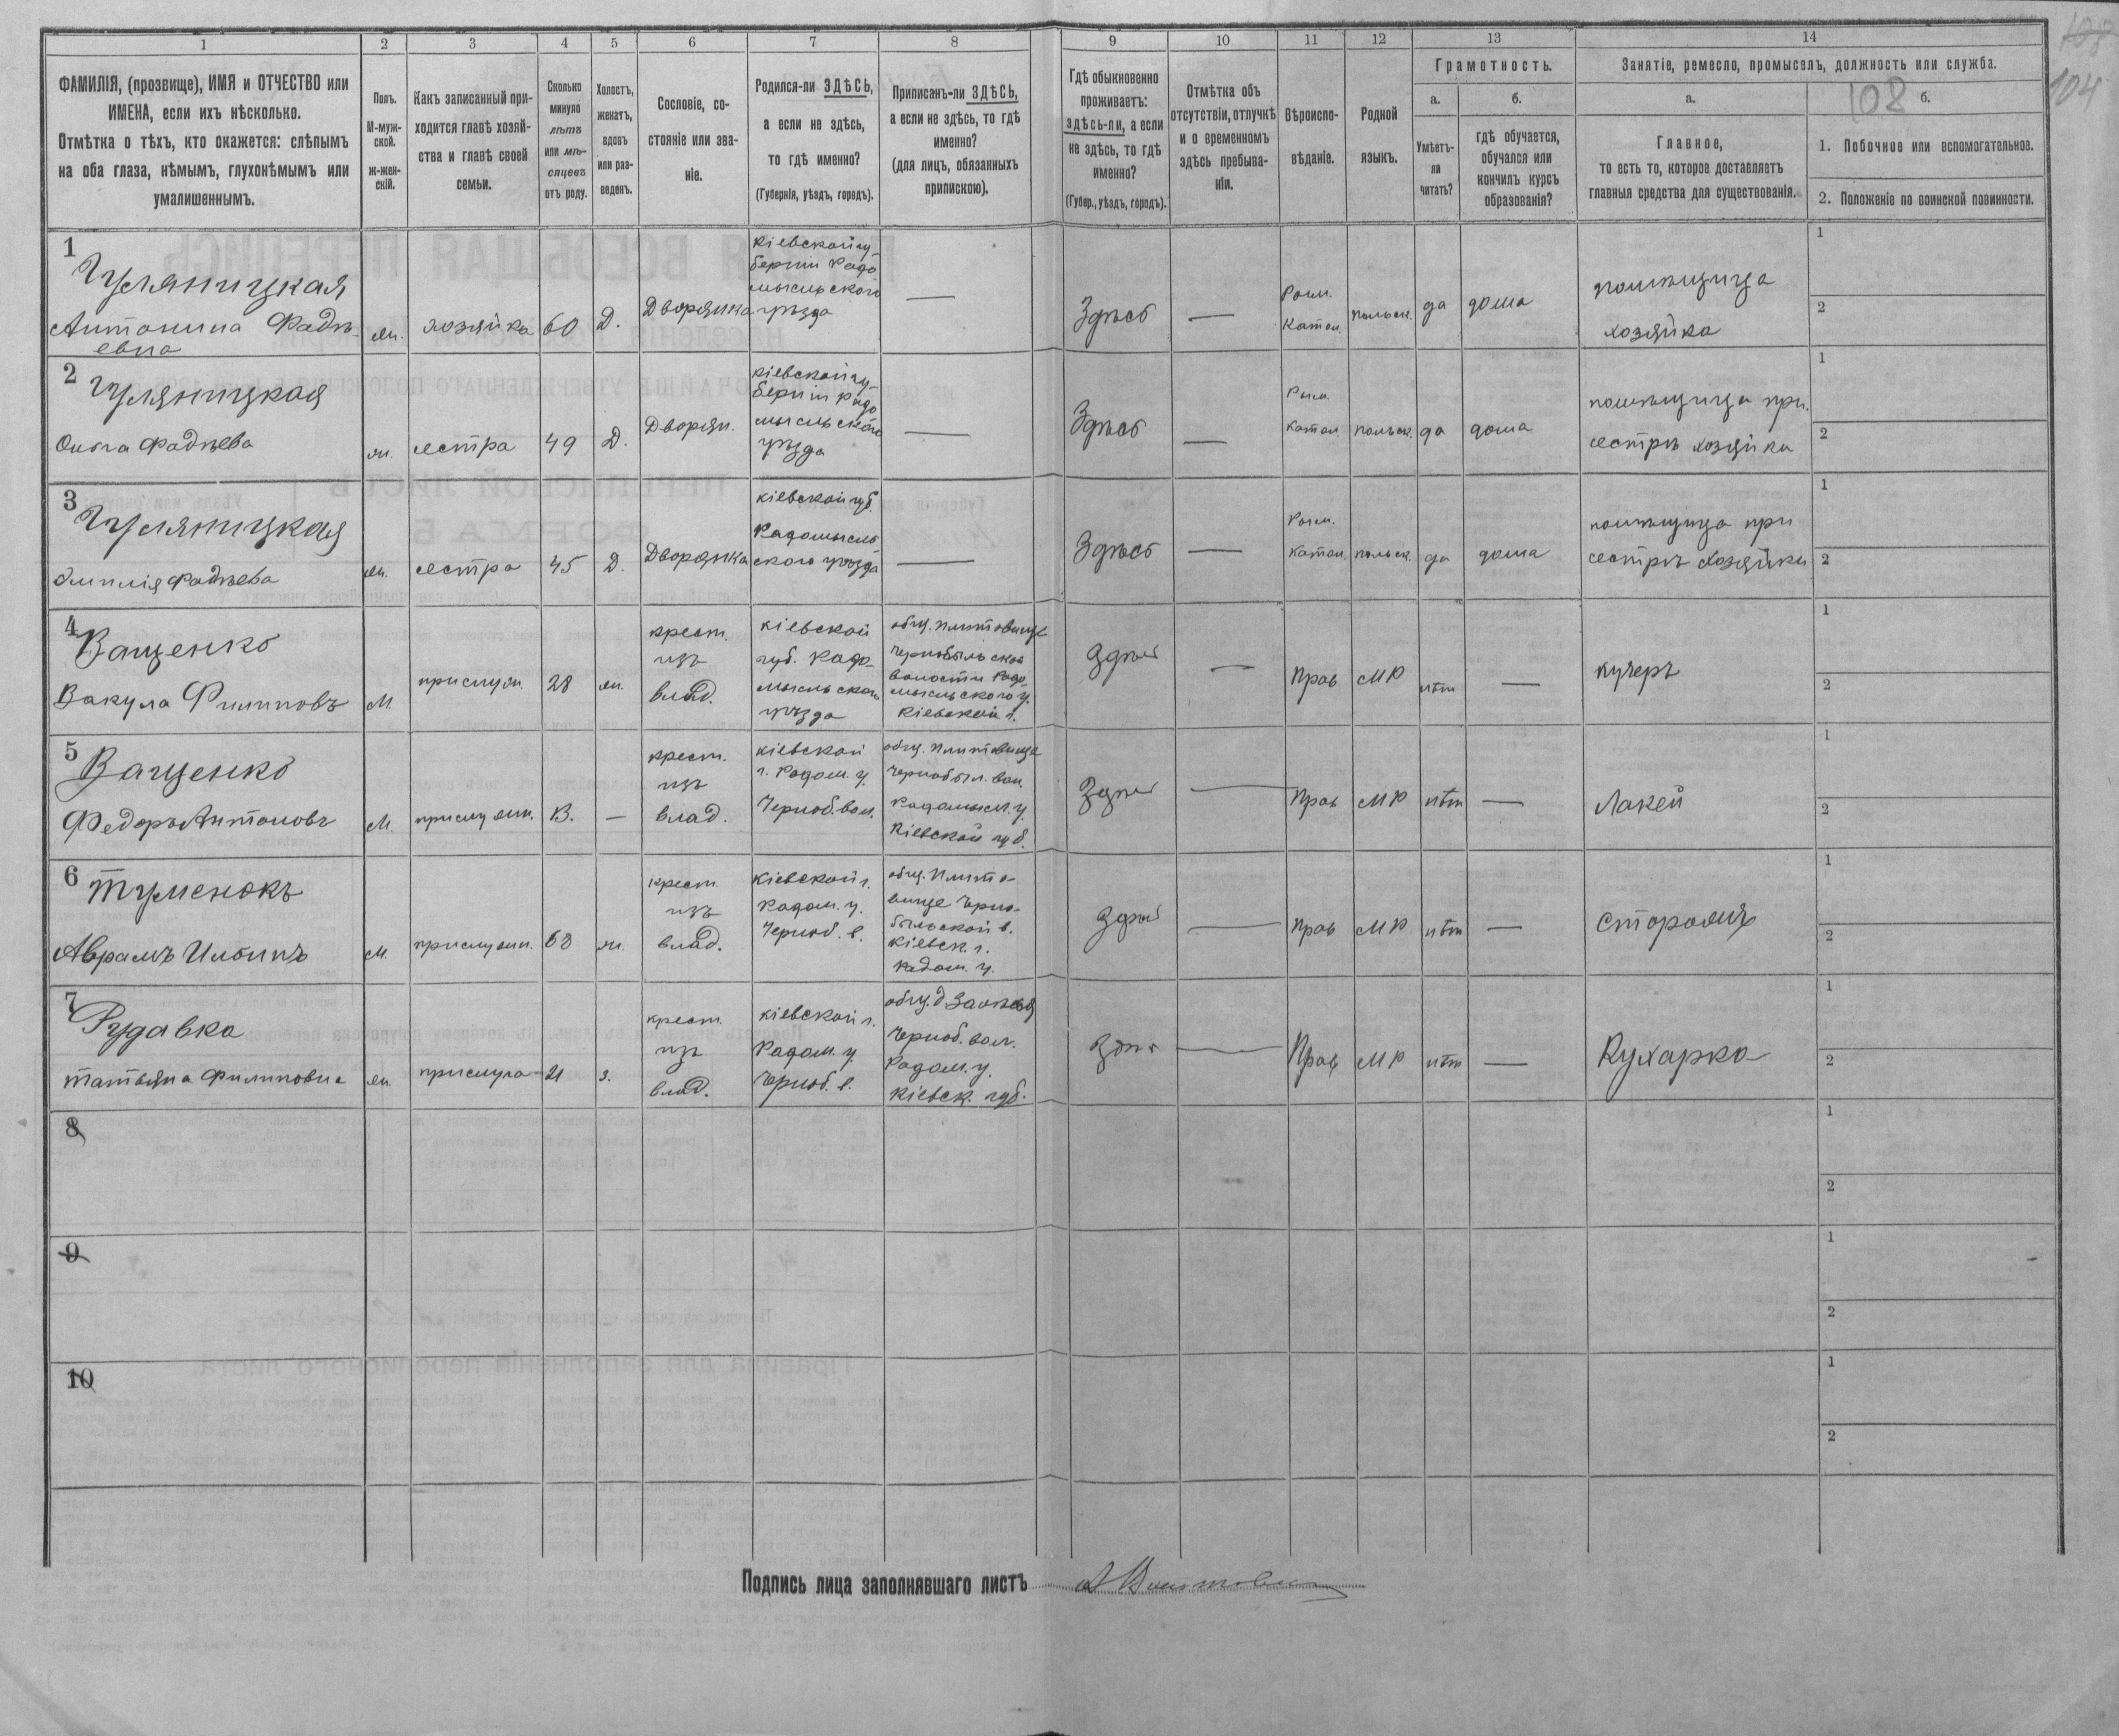 108
104
1 2 3 4 5 6 7 8 9 10 11 12 13 14
ФАМИЛІЯ, (прозвище), ИМЯ и ОТЧЕСТВО или
ИМЕНА, если ихъ нѣсколько.
Отмѣтка о тѣхъ, кто окажется: слѣпымъ
на оба глаза, нѣмымъ, глухонѣмымъ или
умалишеннымъ.
Полъ.
М-муж-
ской.
ж-жен-
скій.
Какъ записанный при-
ходится главѣ хозяй-
ства и главѣ своей
семьи.
Сколько
минуло
лѣтъ
или мѣ-
сяцевъ
отъ роду.
Холостъ,
женатъ,
вдовъ
или раз-
веденъ.
Сословіе, со-
стояніе или зва-
ніе.
Родился-ли ЗДѢСЬ,
а если не здѣсь,
то гдѣ именно?
(Губернія, уѣздъ, городъ).
Приписанъ-ли ЗДѢСЬ,
а если не здѣсь, то гдѣ
именно?
(для лицъ, обязанныхъ
припискою).
Гдѣ обыкновенно
проживаетъ:
здѣсь-ли, а если
не здѣсь, то гдѣ
именно?
(Губер., уѣздъ, городъ).
Отмѣтка объ
отсутствіи, отлучкѣ
и о временномъ
здѣсь пребыва-
ніи.
Вѣроиспо-
вѣданіе.
Родной
языкъ.
Грамотность.
а.
Умѣетъ-
ли
читать?
б.
гдѣ обучается,
обучался или
кончилъ курсъ
образованія?
Занятіе, ремесло, промыселъ, должность или служба.
а.
Главное,
то есть то, которое доставляетъ
главныя средства для существованія.
108 б.
1. Побочное или вспомогательное.
2. Положеніе по воинской повинности.
1
Антонина Фадѣ-
евна
жн.
хозяйка
60
Д.
Дворянка
Кіевской гу-
берніи Радо
мысльского
уѣзда
—
Здѣсь
—
Рим.
Катол.
польск.
да
дома
помѣщица
хозяйка
1
2
2
Ольга Фадѣева
жн.
сестра
49
Д.
Дворян.
Кіевской гу-
берніи Радо
мысльского
уѣзда
—
Здѣсь
—
Рим.
Катол.
польск.
да
дома
помѣщица при.
сестрѣ хозяйки
1
2
3
Эмилія Фадѣева
жн.
сестра
45
Д.
Дворянка
Кіевской губ.
Радомысль
ского уѣзда
—
Здѣсь
—
Рим.
Катол.
польск.
да
дома
помѣщица при
сестрѣ хозяйки
1
2
4
Ващенко
Вакула Филиповъ
М.
прислуж.
28
жн.
крест.
изъ
влад.
Кіевской
губ. Радо-
мысльского
уѣзда
общ. Плитовище
Чернобыльской
волости Радо-
мысльского у.
Кіевской г.
Здѣсь
—
Прав
МР
нѣт
—
кучеръ
1
2
5
Ващенко
Федоръ Антоновъ
М.
прислужн.
13.
—
крест.
изъ
влад.
Кіевской
г. Радом. у.
Черноб. вол.
общ. Плитовище
Чернобыл. вол.
Радомысл. у.
Кіевской губ.
Здѣсь
—
Прав
МР
нѣт
—
Лакей
1
2
6
Тумен­окъ
Аврамъ Ильинъ
М.
прислужн.
63
жн.
крест.
изъ
влад.
Кіевской г.
Радом. у.
Черноб. в.
общ. Плито-
вище Черно-
быльской в.
Кіевск. г.
Радом. у.
Здѣсь
—
Прав
МР
нѣт
—
Сторожъ
1
2
7
Рудавка
Татьяна Филиповна
жн
прислуга
21
з.
крест.
изъ
влад.
Кіевской г.
Радом. у.
Черноб. в.
общ. д
Черноб. вол.
Радом. у.
Кіевск. губ.
—
Прав
МР
нѣт
—
Кухарка
1
2
8
1
2
9
1
2
10
1
2
Подпись лица заполнявшаго листъ